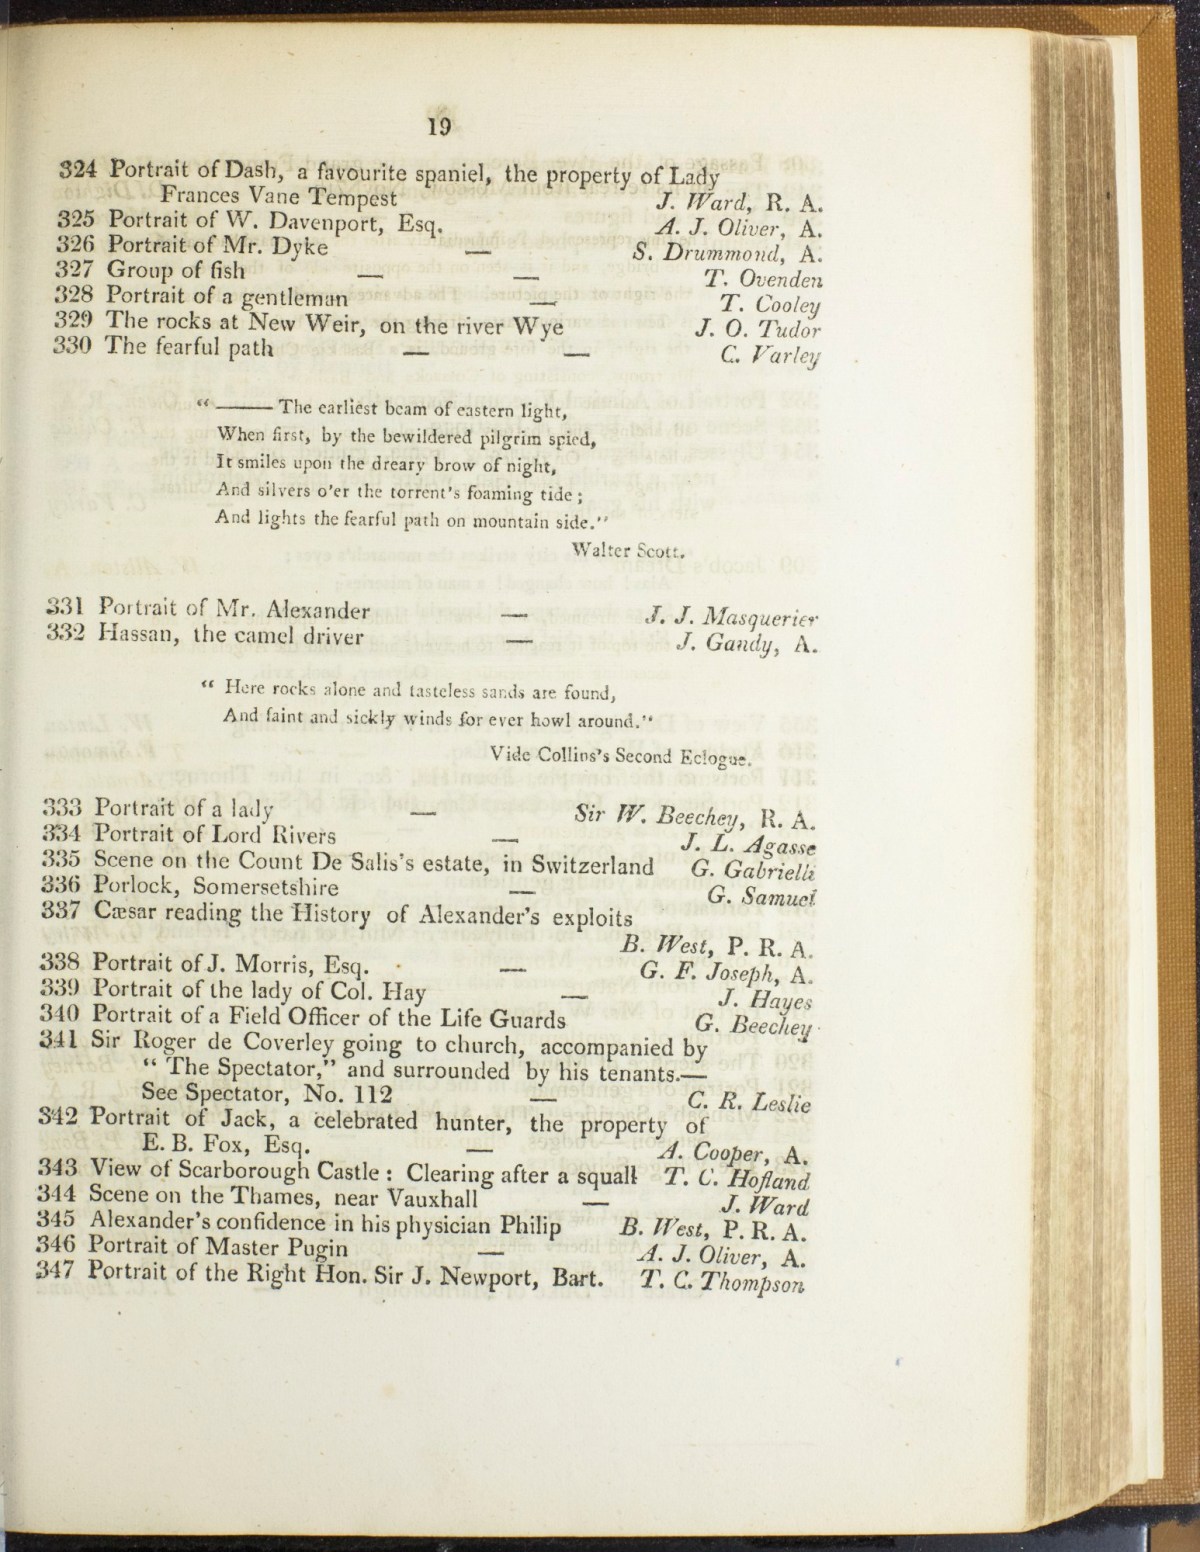 19
324 Portrait of Dash, a favourite spaniel, the property of Lady
Frances Vane Tempest J. Ward, R. A.
325 Portrait of W. Davenport, Esq. A. J. Oliver, A.
326 Portrait of Mr. Dyke — S. Drummond, A.
327 Group of fish — — T. Ovenden
328 Portrait of a gentleman — T. Cooley
329 The rocks at New Weir, on the river Wye J. O. Tudor
330 The fearful path — — C. Varley
“ ——— The earliest beam of eastern light,
When first, by the bewildered pilgrim spied,
It smiles upon the dreary brow of night,
And silvers o'er the torrent's foaming tide;
And lights the fearful path on mountain side.”
Walter Scott.
331 Portrait of Mr. Alexander — J. J. Masquerier
332 Hassan, the camel driver — J. Gandy, A.
“ Here rocks alone and tasteless sands are found,
And faint and sickly winds for ever howl around.”
Vide Collins's Second Eclogue.
333 Portrait of a lady — Sir W. Beechey, R. A.
334 Portrait of Lord Rivers — J. L. Agasse
335 Scene on the Count De Salis's estate, in Switzerland G. Gabrielli
336 Porlock, Somersetshire — G. Samuel
337 Cæsar reading the History of Alexander's exploits
B. West, P. R. A.
338 Portrait of J. Morris, Esq. — G. F. Joseph, A.
339 Portrait of the lady of Col. Hay — J. Hayes
340 Portrait of a Field Officer of the Life Guards G. Beechey
341 Sir Roger de Coverley going to church, accompanied by
“ The Spectator,” and surrounded by his tenants.—
See Spectator, No. 112 — C. R. Leslie
342 Portrait of Jack, a celebrated hunter, the property of
E. B. Fox, Esq. — A. Cooper, A.
343 View of Scarborough Castle : Clearing after a squall T. C. Hofland
344 Scene on the Thames, near Vauxhall — J. Ward
345 Alexander's confidence in his physician Philip B. West, P. R. A.
346 Portrait of Master Pugin — A. J. Oliver, A.
347 Portrait of the Right Hon. Sir J. Newport, Bart. T. C. Thompson